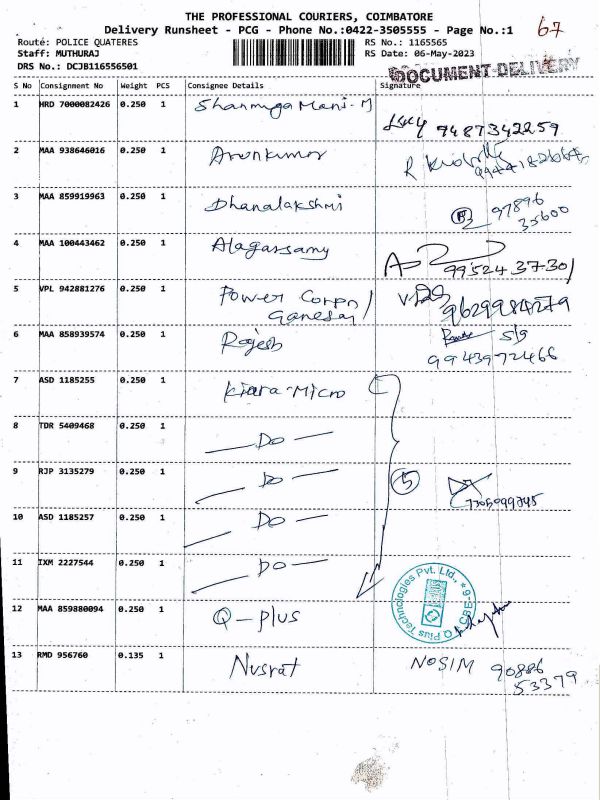 THE PROFESSIONAL COURIERS, COIMBATORE
Delivery Runsheet - PCG - Phone No.:0422-3505555 - Page No.:1
67
Route: POLICE QUATERES
RS No.: 1165565
Staff: MUTHURAJ
RS Date: 06-May-2023
DRS No.: DCJB116556501
DOCUMENT-DELIVERY
S No Consignment No Weight PCS Consignee Details Signature
1 HRD 7000082426 0.250 1 Shanmuga Mani-M
9487342259
2 MAA 938646016 0.250 1 Arunkumar
3 MAA 859919963 0.250 1 Dhanalakshmi
97896
35600
4 MAA 100443462 0.250 1 Alagassamy
99524 37301
5 VPL 942881276 0.250 1 Power Corpn/
Ganesan
9629984279
6 MAA 858939574 0.250 1 Rajesh
S/g
9943972466
7 ASD 1185255 0.250 1 Kiara-Micro
8 TDR 5409468 0.250 1 — Do —
9 RJP 3135279 0.250 1 — Do —
5
10 ASD 1185257 0.250 1 — Do —
11 IXM 2227544 0.250 1 — Do —
12 MAA 859880094 0.250 1 Q-plus
Q Plus Technologies Pvt. Ltd., * CBE-9 *
13 RMD 956760 0.135 1 Nusrat
NOSIM 90886
53379